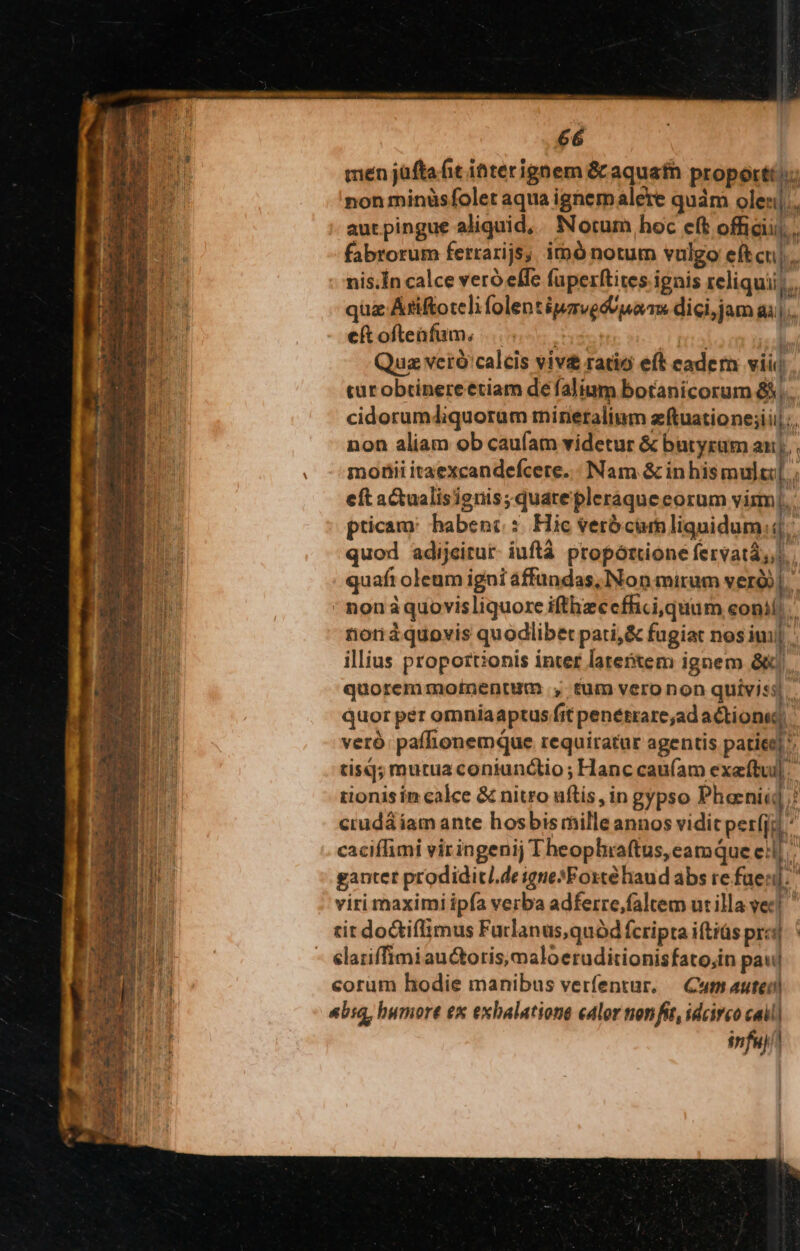 66
men juſta ſit inter ignem & aquam
non minùs ſolet aqua ignem alere quàm
aut pingue aliquid. Notum hoc eſt
fabrorum ferrarijs, imò notum vulgo eſt
nis. In calce verò eſſe ſuperſtites ignis
quæ Ariſtoteli ſolent ἐμπυρεύματα dici, jam
eſt oſtenſum.
Quæ verò calcis vivæ ratio eſt eadem
tur obtinere etiam de ſalium botanicorum &
cidorum liquorum mineralium æſtuatione;
non aliam ob cauſam videtur & butyrum
monii ita excandeſcere. Nam & in his
eſt actualis ignis; quare pleraque eorum
pticam habent: Hic verò cum liquidum
quod adijcitur iuſtâ proportione ſervatâ,
quaſi oleum igni affundas, Non mirum verò
non à quovis liquore iſthæc effici, quum
non à quovis quodlibet pati, & fugiat nos
illius proportionis inter latentem ignem &
quorem momentum, tum vero non
quot per omnia aptus ſit penetrare, ad
verò paſſionemque requiratur agentis
tisq; mutua coniunctio; Hanc cauſam
tionis in calce & nitro uſtis, in gypso
crudâ iam ante hos bis mille annos vidit
caciſſimi vir ingenij Theophraſtus, eamque
ganter prodidit l. de igne. Forte haud abs re
viri maximi ipſa verba adferre, ſaltem ut illa
tit doctiſſimus Furlanus, quòd ſcripta iſtius
clariſſimi auctoris, malo eruditionis fato, in
eorum hodie manibus verſentur. Cum
absq, humore ex exhalatione calor non fit, idcirco